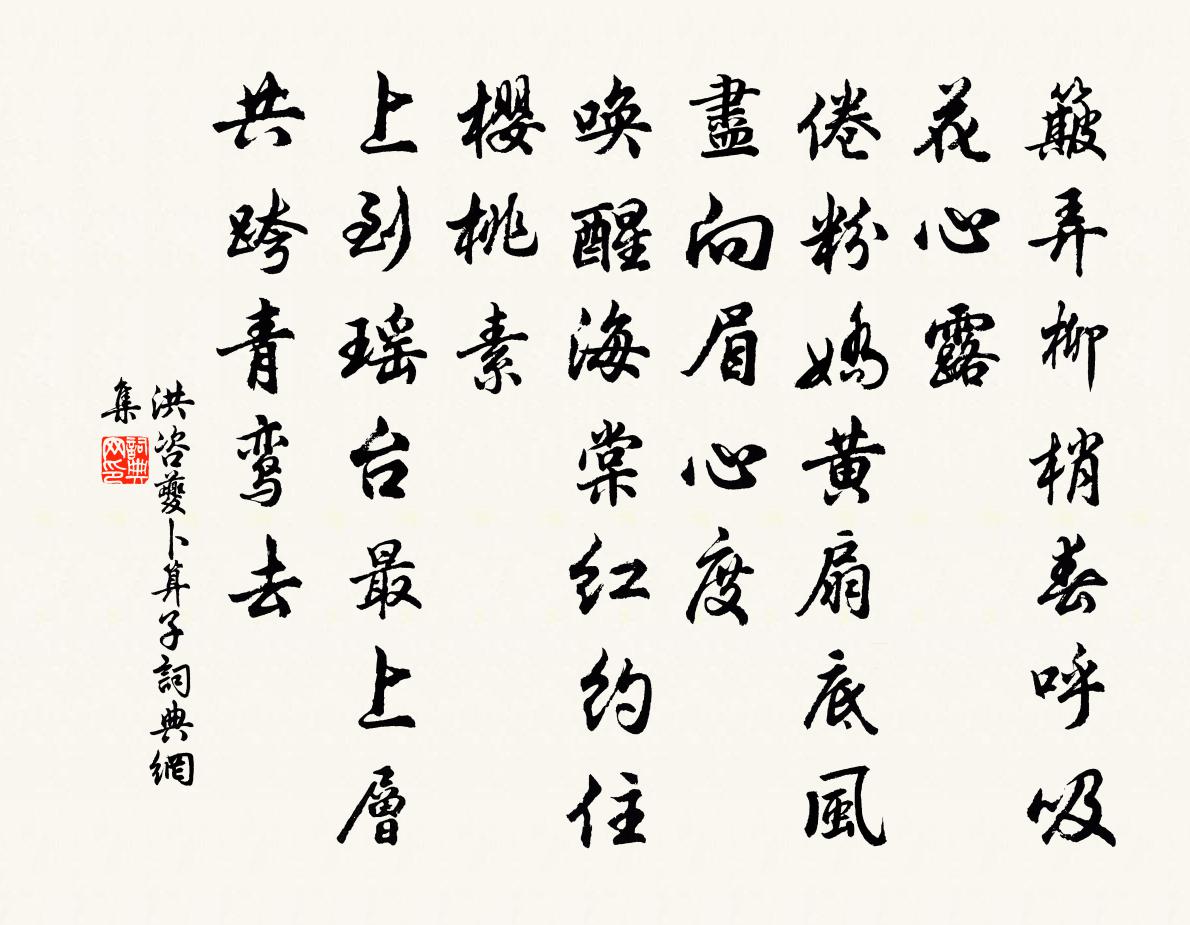 簸弄柳梢春呼吸
花心露
倦粉嬌黄扇底風
盡向眉心度
喚醒海棠红約住
櫻桃素
上到瑶台最上層
共跨青鸾去
洪咨夔卜算子詞典網
集
詞典
网印